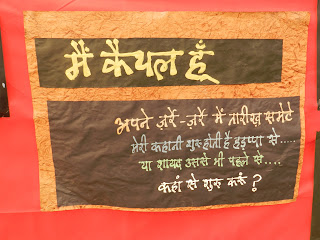 मैं कैथल हूँ
अपने ज़र्रे-ज़र्रे में तारीख समेटे
मेरी कहानी शुरू होती है हड़प्पा से.....
या शायद उससे भी पहले से....
कहां से शुरू करूं ?